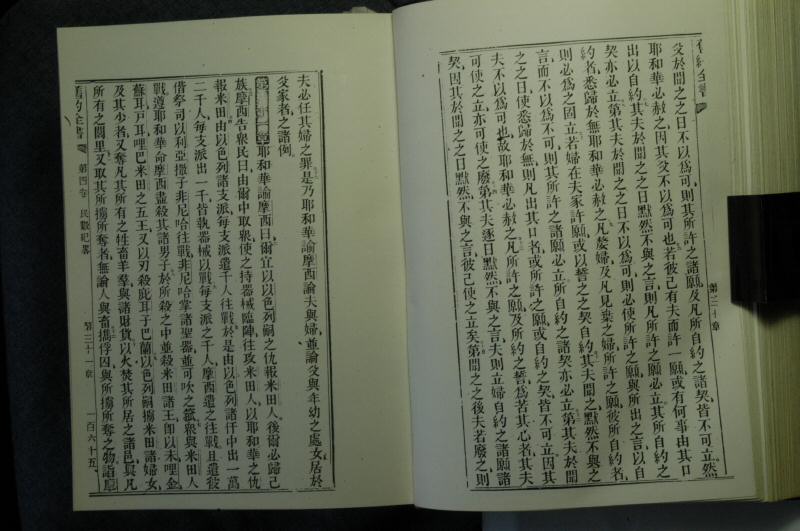 舊約全書
第三十章
父於聞之之日不以爲可、則其所許之諸願、及凡所自約之諸契、皆不可立、然
耶和華必赦之、因其父不以爲可也、若彼己有夫而許一願、或有何事由其口
出以自約、其夫於聞之之日默然不與之言、則凡所許之諸願必立、其所自約之
契亦必立、第其夫於聞之之日不以爲可、則必使所許之願、與所出之言以自
約者、悉歸於無、耶和華必赦之、凡嫠婦及凡見棄之婦所許之願、彼所自約者、
則必爲之固立、若婦在夫家許願、或以誓之之契自約、其夫聞之、默然不與之
言、而不以爲不可、則其所許之諸願必立、所自約之諸契亦必立、第其夫於聞
之之日使悉歸於無、則凡出其口者、或所許之願、或自約之契、皆不可立、因其
夫不以爲可也、故耶和華必赦之、凡所許之願、及所約之誓、爲苦其心者、其夫
可使之立、亦可使之廢、第其夫逐日默然不與之言、夫則立婦自約之諸願諸
契、因其於聞之之日默然不與之言、彼已使之立矣、第聞之之後夫若廢之、則
夫必任其婦之罪、是乃耶和華諭摩西論夫與婦、並論父與年幼之處女居於
父家者之諸例、
第三十一章 耶和華諭摩西曰、爾宜以以色列嗣之仇報米田人、後爾必歸己
族、摩西告衆民曰、由爾中取衆使之持器械臨陣、往攻米田人、以耶和華之仇
報米田、由以色列諸支派、每支派遣千人往戰、於是由以色列諸仟中出一萬
二千人、每支派出一千、皆執器械以戰、每支派之千人、摩西遣之往戰、且遣彼
偕祭司以利亞撒子非尼哈往戰、非尼哈掌諸聖器、並可吹之籤、衆與米田人
戰、遵耶和華命摩西、盡殺其諸男子、於所殺之中、並殺米田諸王、卽以未、哩金、
蘇耳、戸耳、哩巴、米田之五王、又以刃殺庇耳子巴蘭、以色列嗣擄米田諸婦女、
及其少者、又奪凡其所有之牲畜羊羣、與諸財貨、以火焚其所居之諸邑、與凡
所有之閭里、又取其所擄所奪者、無論人與畜、攜俘囚與所擄所奪之物、詣摩
舊約全書 第四卷 民數紀畧 第三十一章 一百六十五